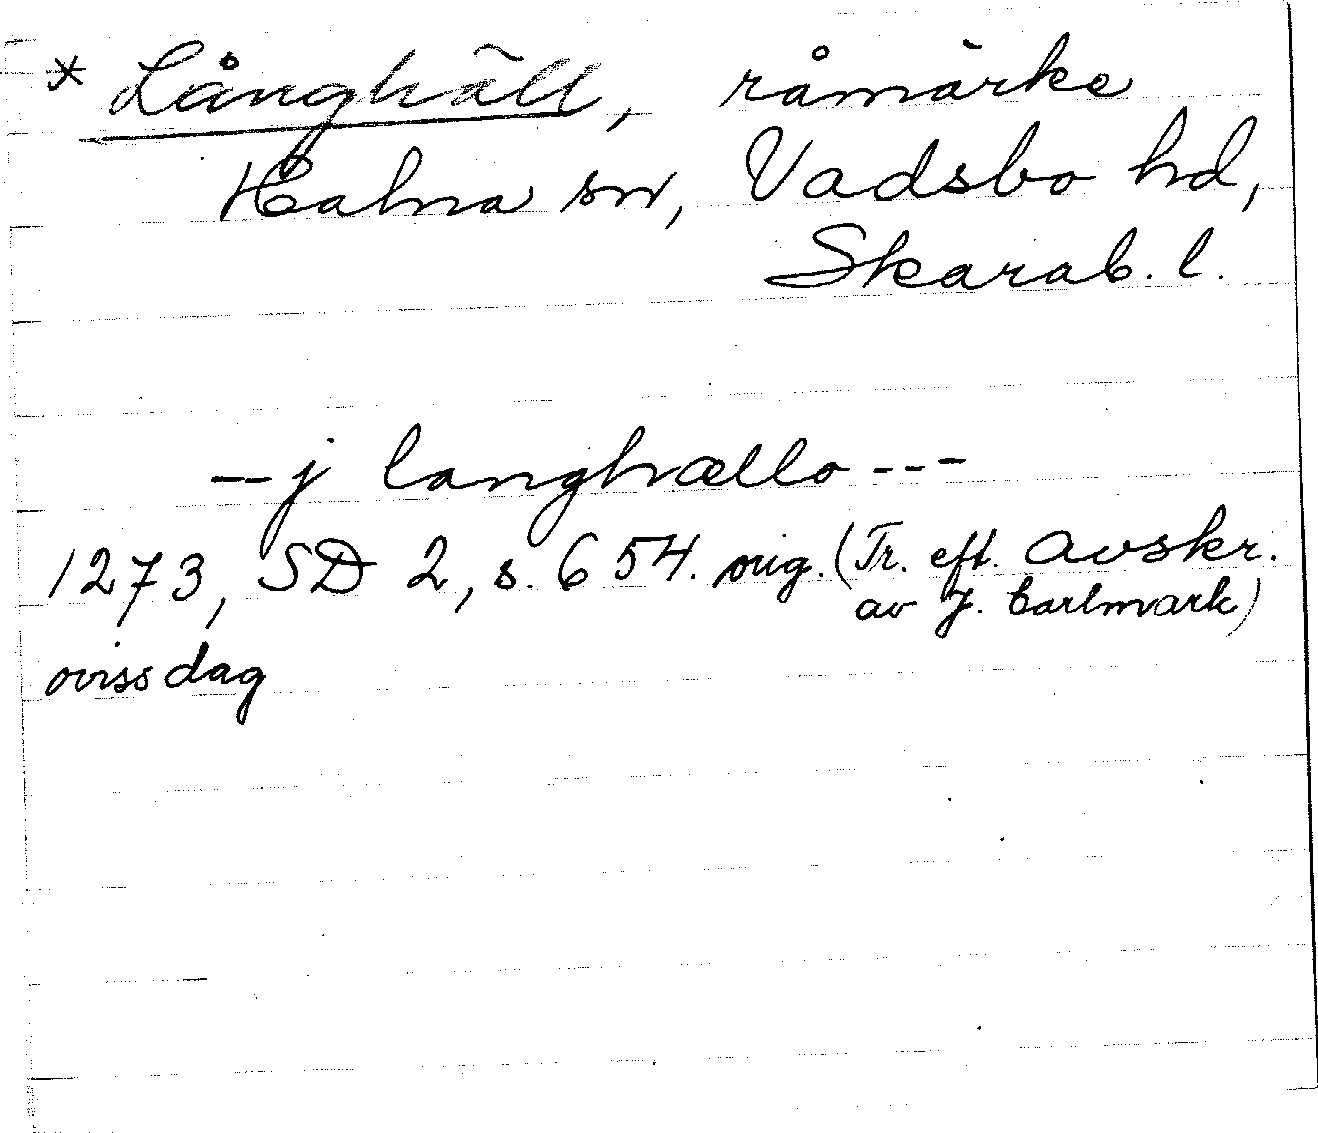 * Långhäll, råmärke
Halna sn, Vadsbo hd,
Skarab. l.
-- j langhællo ---
1273, SD 2, s. 654. orig. (Tr. eft. avskr.
av J. Carlmark)
oviss dag